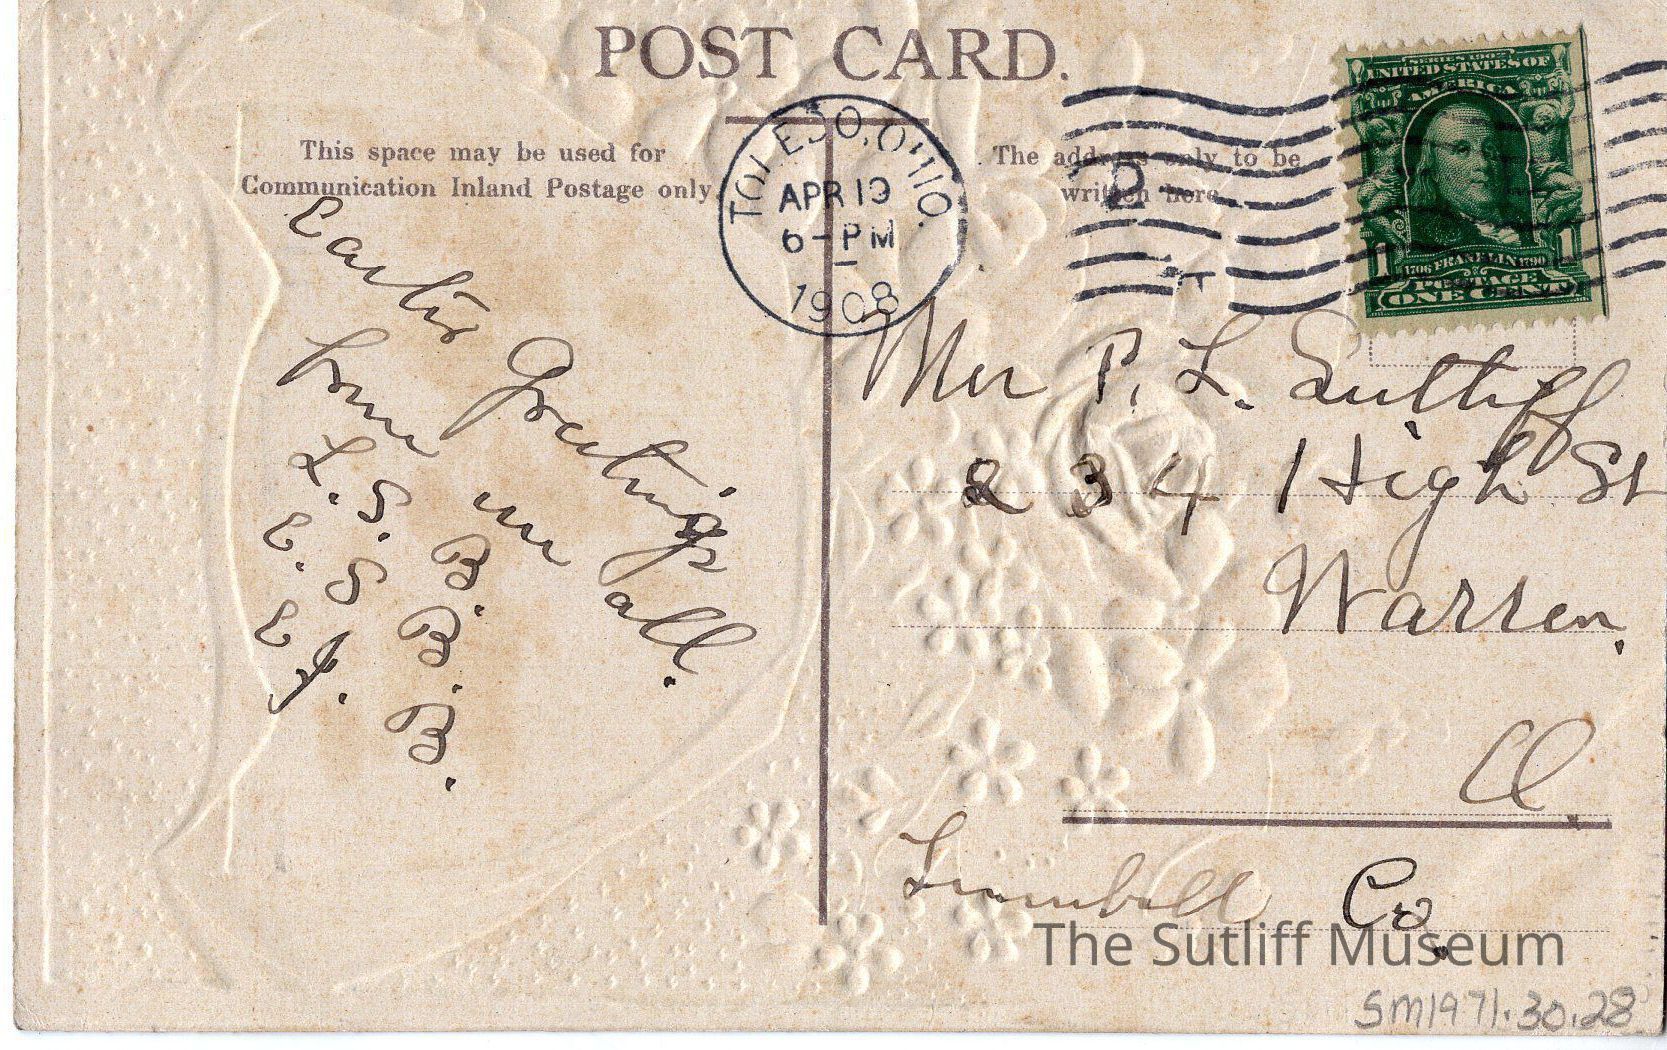 POST CARD.
This space may be used for
Communication Inland Postage only
The address only to be
written here
TOLEDO, OHIO.
APR 19
6-PM
1908
SERIES 1902
UNITED STATES OF
AMERICA
1706 FRANKLIN 1790
POSTAGE
1 1
ONE CENT
Easter Greetings
from us all.
L. S. B.
E. S. B.
E. J. B.
P. L. Sutliff
234 High St
Warren,
O
Trumbull Co.
The Sutliff Museum
SM1971.30.28